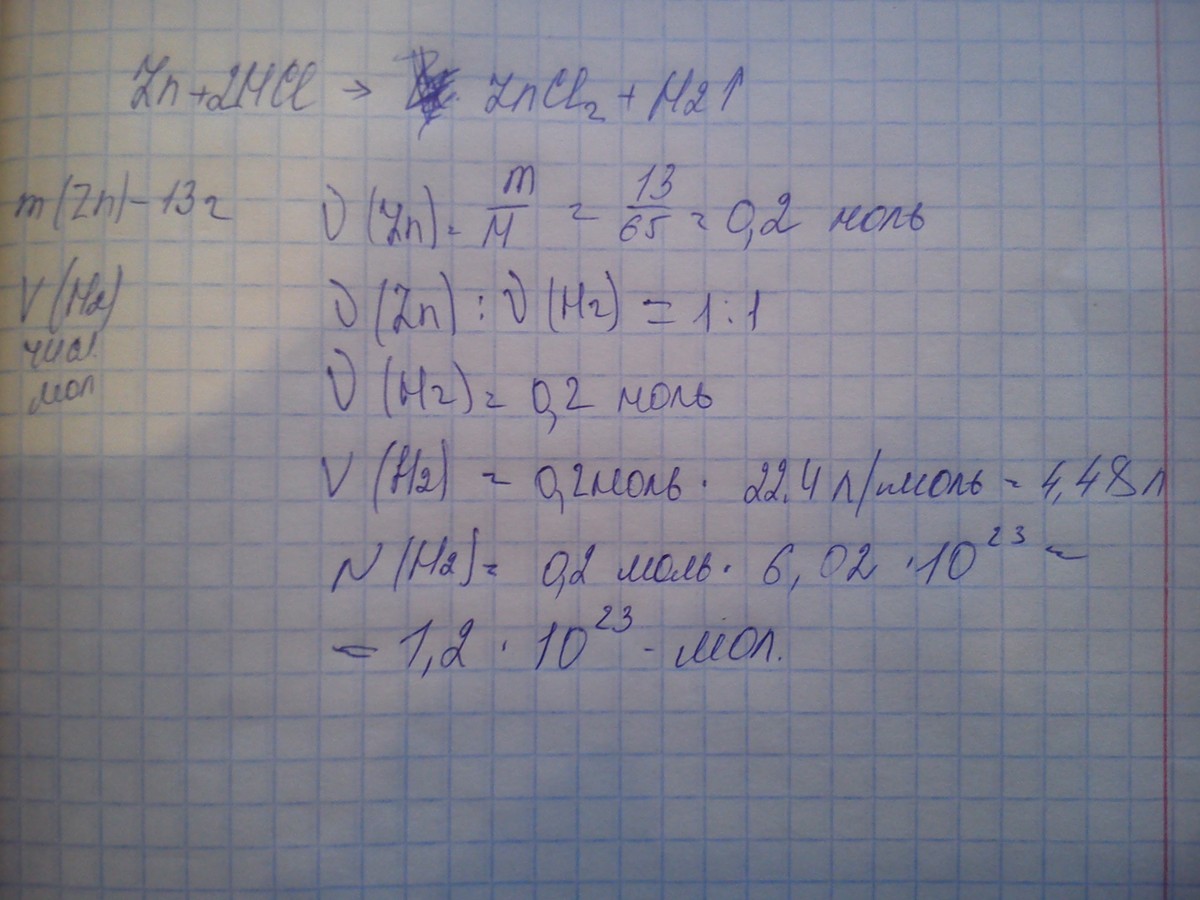 Zn + 2HCl → ZnCl₂ + H2↑
m(Zn) - 13г
V(H₂)
чис.
мол
ν(Zn) = m/M = 13/65 = 0,2 моль
ν(Zn) : ν(H₂) = 1:1
ν(H₂) = 0,2 моль
V(H₂) = 0,2моль · 22.4 л/моль = 4,48л
N(H₂) = 0,2 моль · 6,02 · 10²³ =
= 1,2 · 10²³ - мол.